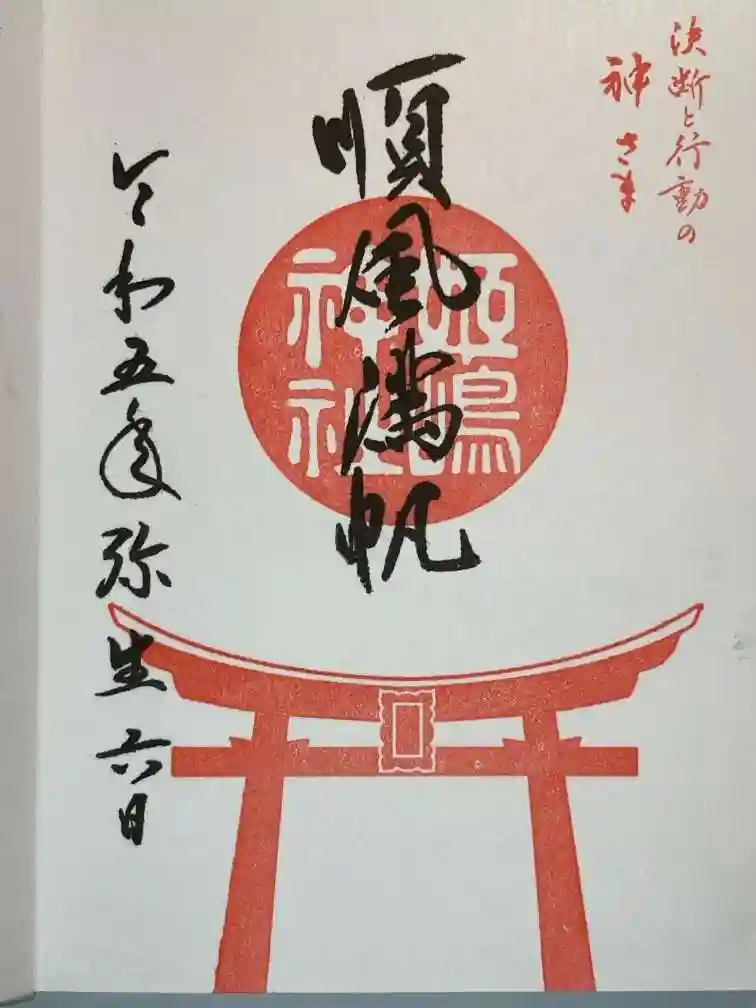 決断と行動の
神さま
順風満帆
姫嶋
神社
令和五年弥生六日